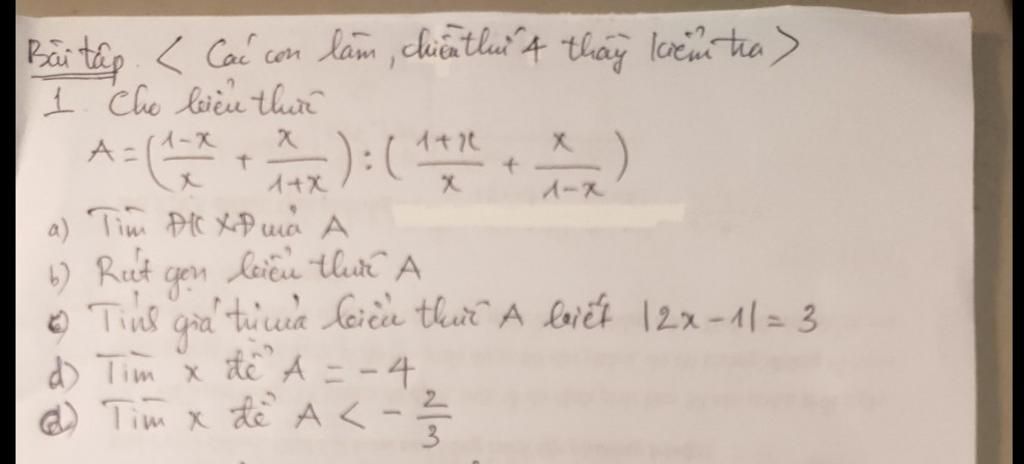 Bài tập. < Các con làm, chiều thứ 4 thầy kiểm tra >
1. Cho biểu thức
A = ( (1-x)/x + x/(1+x) ) : ( (1+x)/x + x/(1-x) )
a) Tìm ĐKXĐ của A
b) Rút gọn biểu thức A
c) Tính giá trị của biểu thức A biết |2x-1| = 3
d) Tìm x để A = -4
đ) Tìm x để A < - 2/3